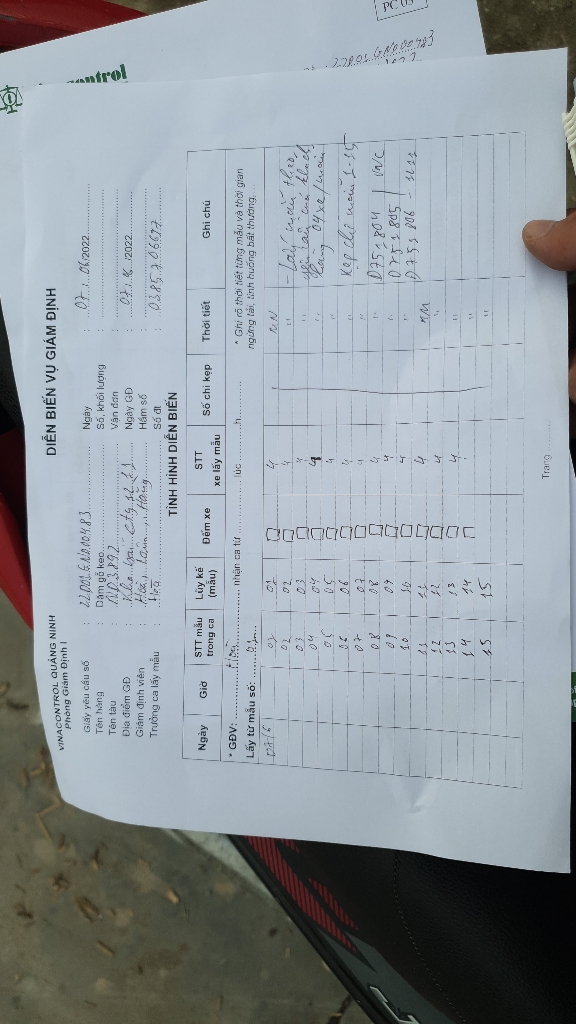 PC 03
control
22D01GND00483
VINACONTROL QUẢNG NINH
Phòng Giám Định I
DIỄN BIẾN VỤ GIÁM ĐỊNH
Giấy yêu cầu số : 22D01GND00483 Ngày : 07/06/2022
Tên hàng : Dăm gỗ keo Số, khối lượng :
Tên tàu : Vận đơn :
Địa điểm GĐ : Kho bãi cty số 11 Ngày GĐ : 07/6/2022
Giám định viên : Hòa, Hầm số :
Trưởng ca lấy mẫu : Hòa Số đt : 0385706697
TÌNH HÌNH DIỄN BIẾN
Ngày Giờ STT mẫu trong ca Lũy kế (mẫu) Đếm xe STT xe lấy mẫu Số chì kẹp Thời tiết Ghi chú
* GĐV: Hòa nhận ca từ lúc h * Ghi rõ thời tiết từng mẫu và thời gian
Lấy từ mẫu số: 01 ngừng tải, tình huống bất thường,...
07/6 01 01 4 MN - Lấy mẫu theo
02 02 4 "
03 03 4 " 04 xe/mẫu
04 04 4 "
05 05 4 " Kẹp chì mẫu 1-15
06 06 4 "
07 07 4 " D751804 VNC
08 08 4 " D751805
09 09 4 " D751806 -
10 10 4 "
11 11 4 MN
12 12 4 "
13 13 4 "
14 14 "
15 15 "
Trang